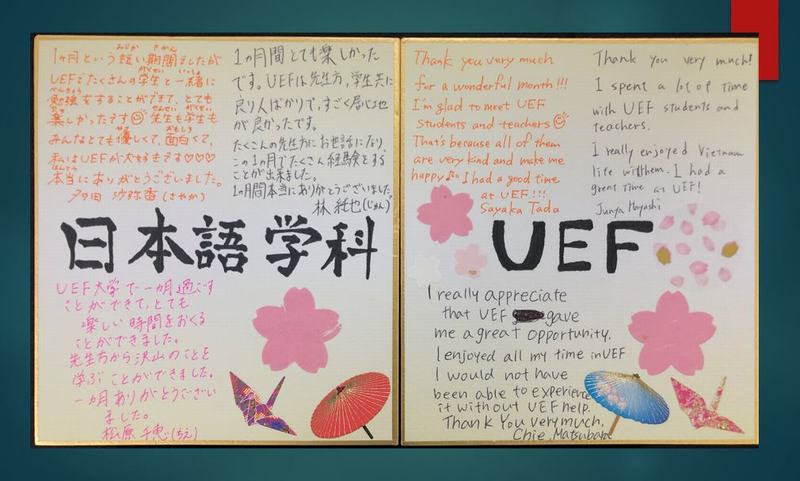 1ヶ月という短い期間でしたが
UEFでたくさんの学生と一緒に
勉強をすることができて、とても
楽しかったです 先生も学生も
みんなとても優しくて、面白くて、
私はUEFが大好きです♡♡♡
本当にありがとうございました。
多田 沙弥香 (さやか)
1ヵ月間とても楽しかった
です。UEFは先生方、学生共に
良い人ばかりで、すごく居心地
が良かったです。
たくさんの先生方にお世話になり、
この1ヵ月でたくさん経験をする
ことが出来ました。
1ヵ月間本当にありがとうございました。
林 純也(じゅん)
日本語学科
UEF大学で一カ月過ごす
ことができて、とても
楽しい時間をおくる
ことができました。
先生方から沢山のことを
学ぶことができました。
一カ月ありがとうござい
ました。
松原 千恵(ちえ)
Thank you very much
for a wonderful month!!!
I'm glad to meet UEF
students and teachers
That's because all of them
are very kind and make me
happy♪ I had a good time
at UEF!!!
Sayaka Tada
Thank you very much!
I spent a lot of time
with UEF students and
teachers.
I really enjoyed Vietnam
life with them. I had a
great time at UEF!
Junya Hayashi
UEF
I really appreciate
that UEF gave
me a great opportunity.
I enjoyed all my time in UEF
I would not have
been able to experience
it without UEF help.
Thank you very much,
Chie Matsubara